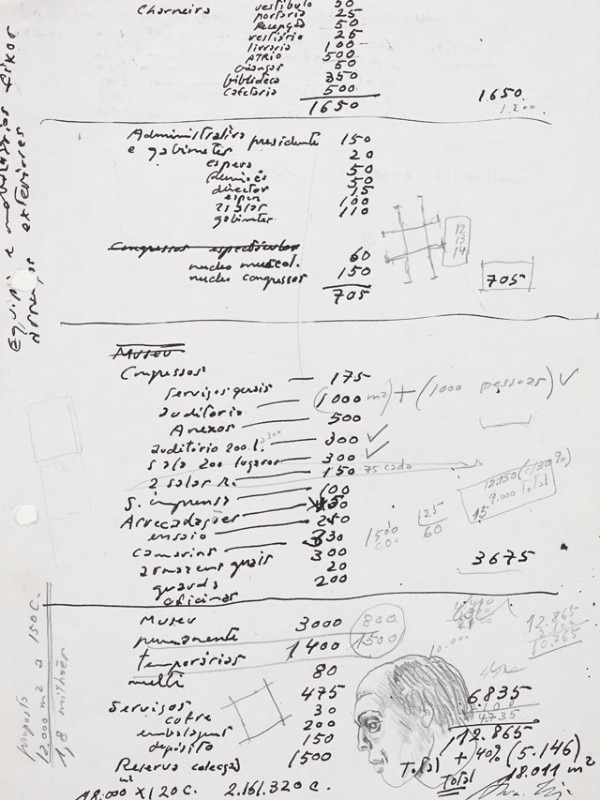 Charneira vestíbulo 50
portaria 25
Recepção 50
vestiário 25
livraria 100
ATRIO 500
crianças 50
biblioteca 350
cafetaria 500
1650
1650.
1.200.
Administrativa presidente 150
e gabinetes
espera 20
Reuniões 50
director 50
espera 15
100
gabinetes 110
Congressos espectáculos
nucleo musical. 60
nucleo congressos 150
705
12
13
14
705
Museu
Congressos
Serviços gerais — 175
auditorio — (1000 m2) + (1000 pessoas) ✓
Anexos — 500
auditório 200 l. — 300 ✓
sala 200 lugares — 300 ✓
2 salas r. — 150 75 cada
S. imprensa — 100
Arrecadações
ensaio — 250
camarins
armazens gerais 300
guarda 20
oficinas 200
12150 (-30%)
9.000 total
15
125
60
1500
3675
Museu
permanente 3000 800
temporários 1400 1500
multi 80
Serviços 475
cofre 30
embalagens 200
depósito 150
Reserva colecção 1500
10.000
12.865
10.365
6.835
4735
12.865
Total + 40% (5.146)
Total 18.011 m2
18.000 m2 X 120 C. 2.161.320 C.
Equip. e mobiliários fixos
Arranjos exteriores
proposta
12.000 m2 a 150 C.
1,8 milhões